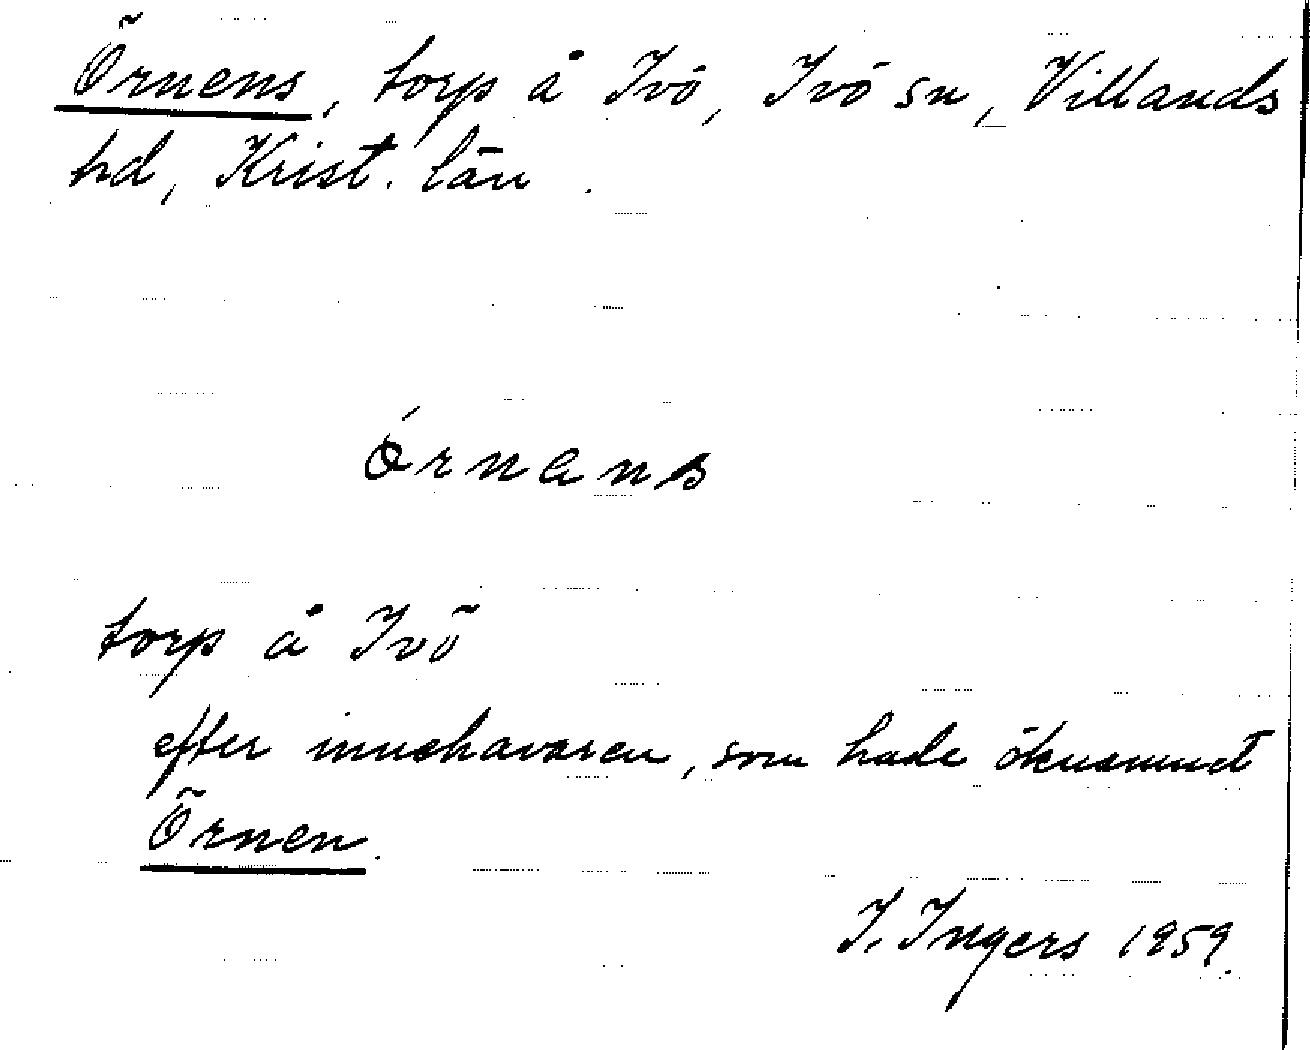 Örnens, torp å Ivö, Ivö sn, Villands
hd, Krist. län.
ǿrnans
torp å Ivö
efter innehavaren, som hade öknamnet
Örnen.
I. Ingers 1959.